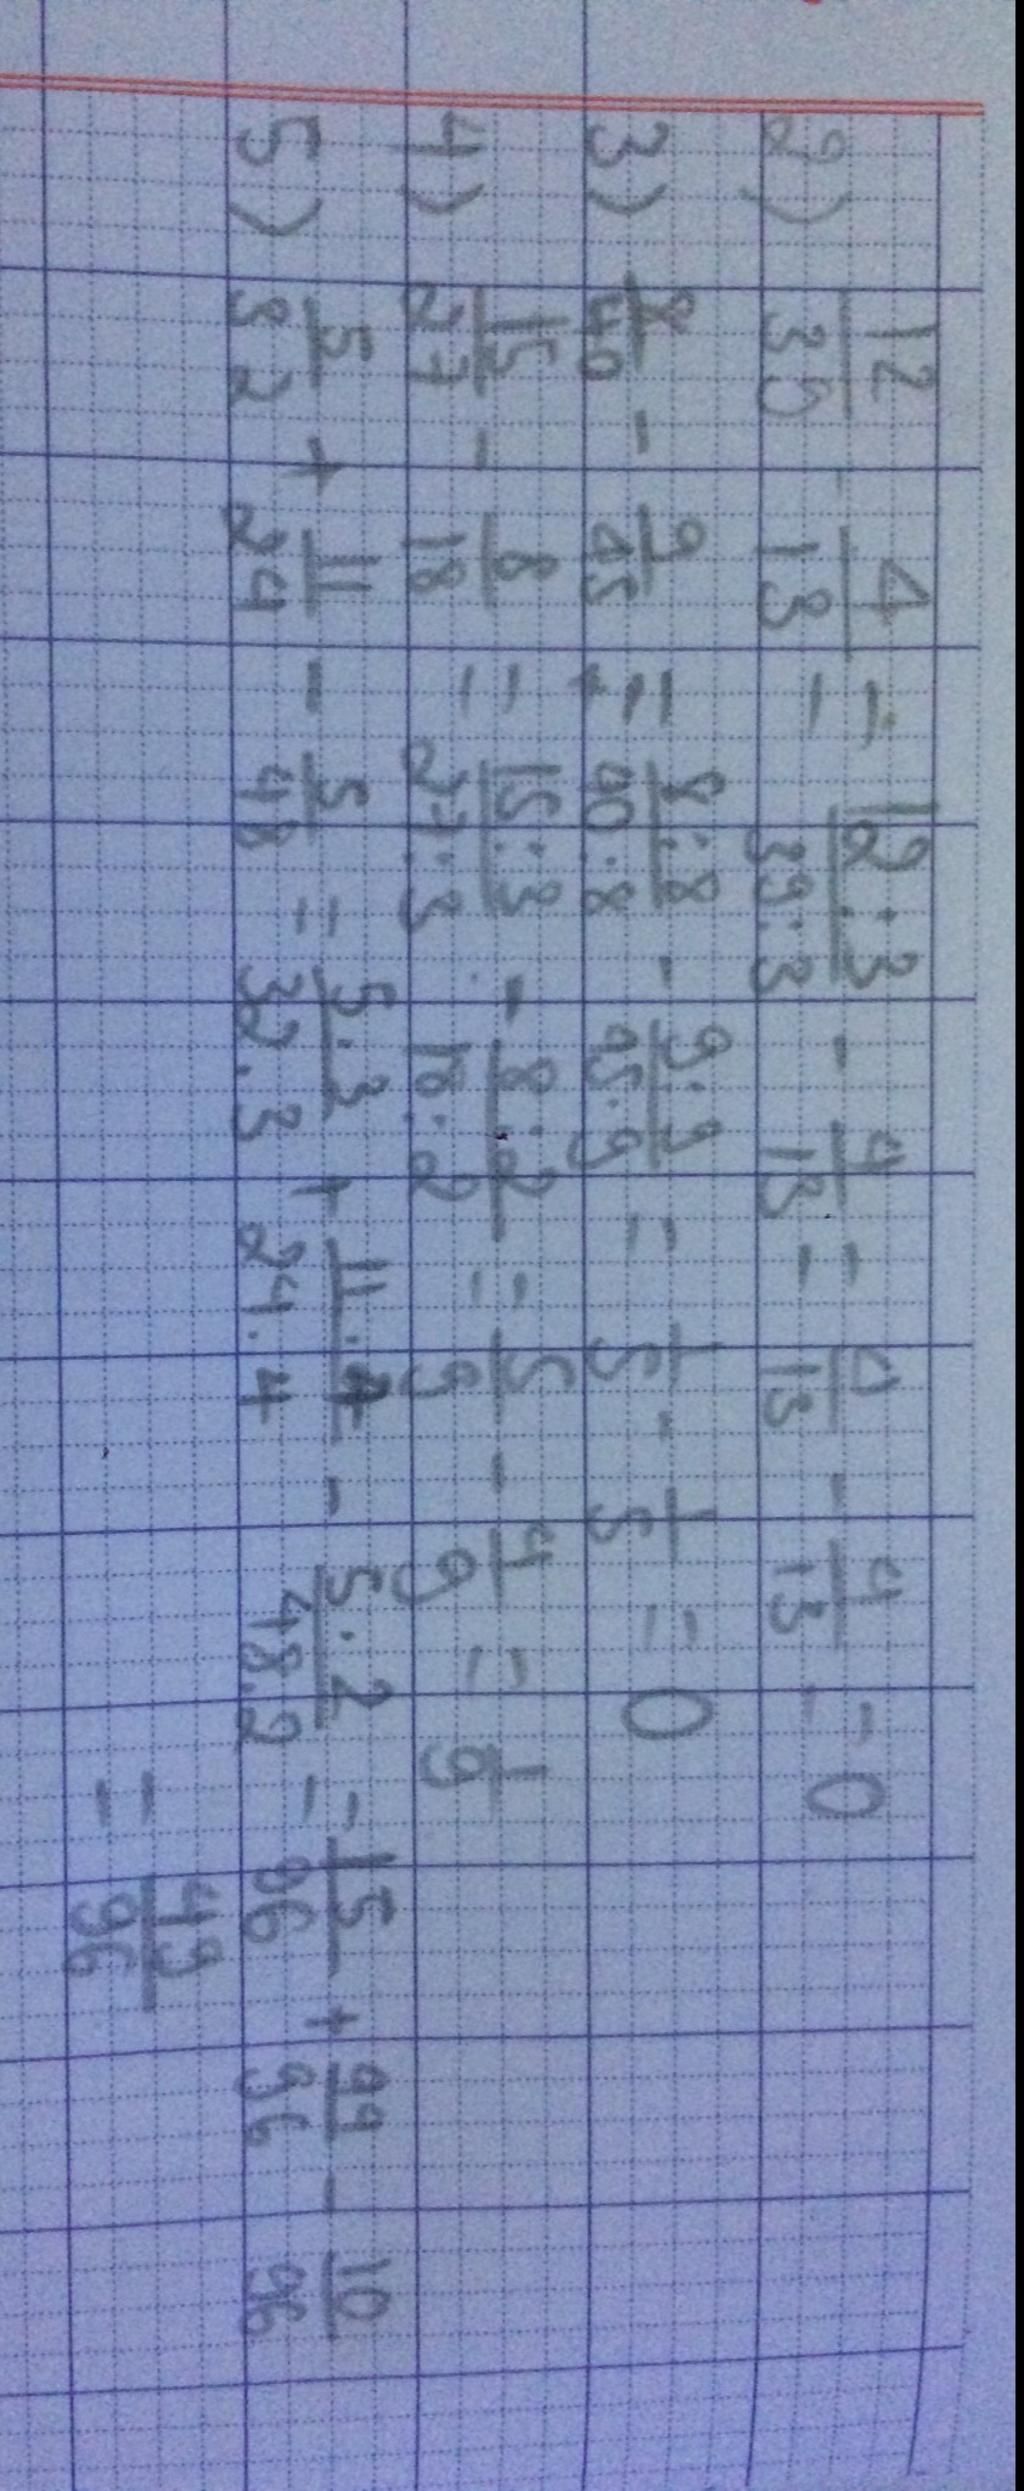 2) 12/39 - 4/13 = 12:3/39:3 - 4/13 = 4/13 - 4/13 = 0
3) 8/40 - 9/45 = 8:8/40:8 - 9:9/45:9 = 1/5 - 1/5 = 0
4) 15/27 - 8/18 = 15:3/27:3 - 8:2/18:2 = 5/9 - 4/9 = 1/9
5) 5/32 + 11/24 - 5/48 = 5.3/32.3 + 11.4/24.4 - 5.2/48.2 = 15/96 + 44/96 - 10/96
= 49/96